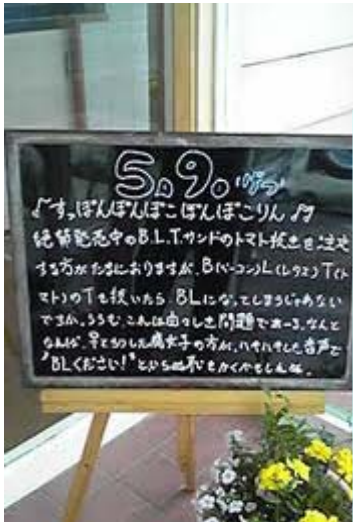 5.9.げつ
♪すっぽんぽんぽこぽんぽこりん♪
絶賛発売中のB.L.T.サンドのトマト抜きを注文
する方がたまにおりますが、B(ベーコン)L(レタス)T(ト
マト)のTを抜いたら、BLになってしまうじゃない
ですか。ううむ、これは由々しき問題であーる。なんと
なれば、早とちりした腐女子の方が、ハァハァした音声で
"BLください!"といらぬ恥をかくかもしれぬ。